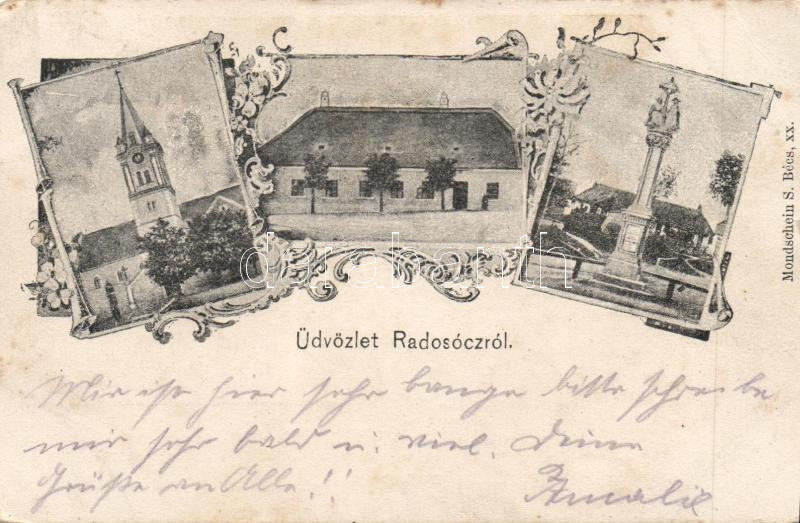 Üdvözlet Radosóczról.
Mondschein S. Bécs, xx.
darabanth
Mir ist hier sehr bange bitte schreibe
mir sehr bald u. viel. Deine
Grüße an Alle!!
Amalie